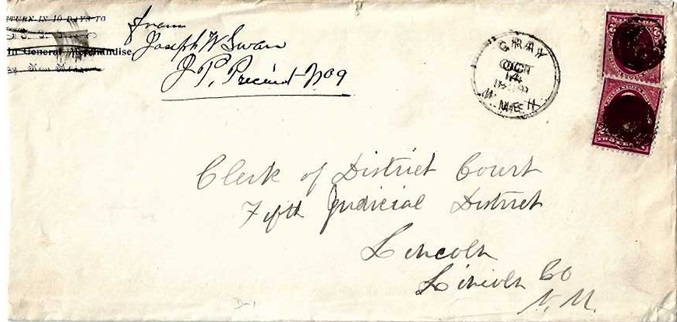 RETURN IN 10 DAYS TO
In General Merchandise
from
Joseph W Swan
J P, Precinct No 9
GRAY
OCT
14
N. MEX
Clerk of District Court
Fifth Judicial District
Lincoln
Lincoln Co
N. M.
D-1